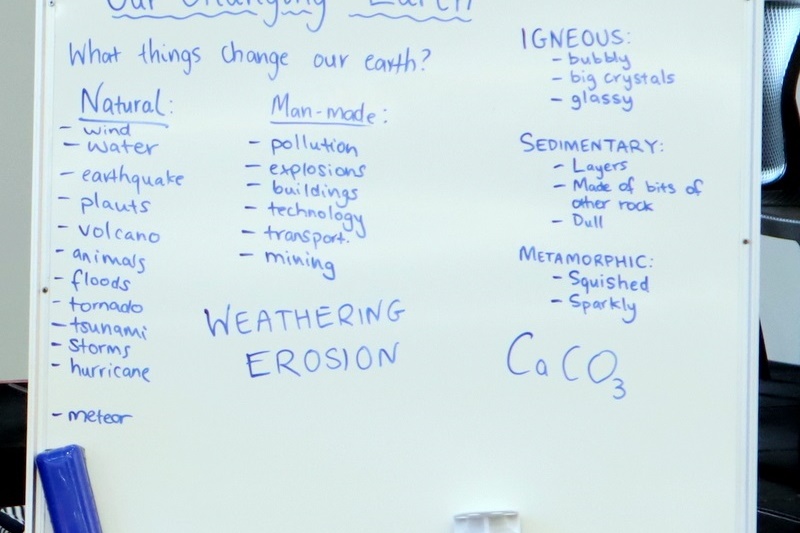 Our Changing Earth
What things change our earth?
Natural:
- wind
- water
- earthquake
- plants
- volcano
- animals
- floods
- tornado
- tsunami
- storms
- hurricane
- meteor
Man-made:
- pollution
- explosions
- buildings
- technology
- transport.
- mining
WEATHERING
EROSION
IGNEOUS:
- bubbly
- big crystals
- glassy
SEDIMENTARY:
- Layers
- Made of bits of
other rock
- Dull
METAMORPHIC:
- Squished
- Sparkly
CaCO3